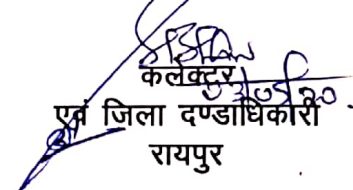 कलेक्टर
एवं जिला दण्डाधिकारी
रायपुर